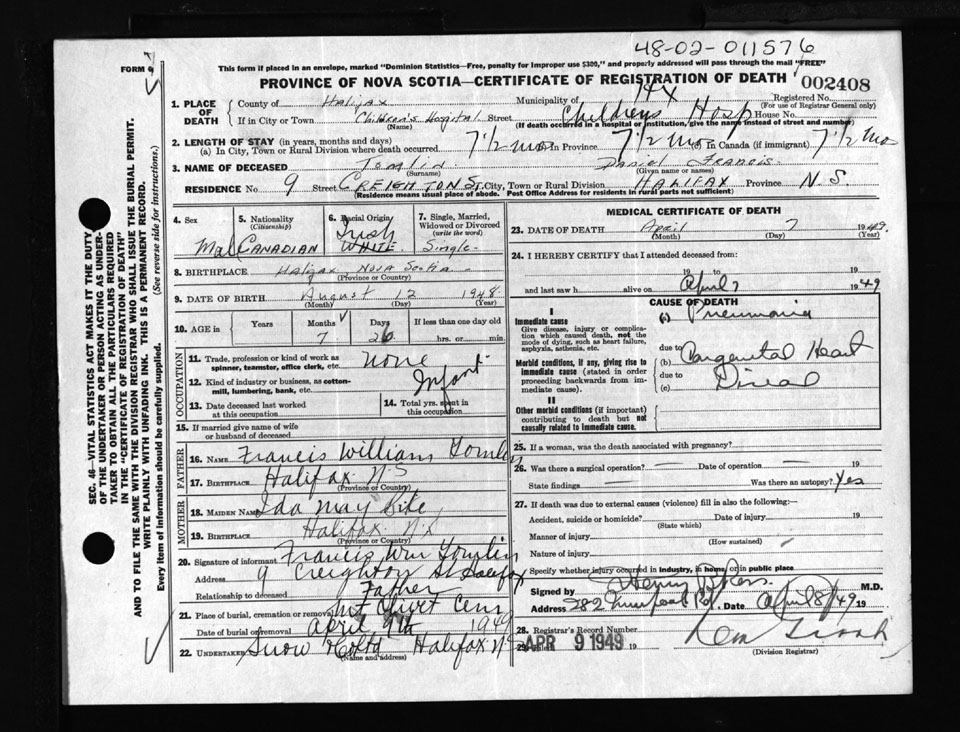 48-02-011576
FORM 9
This form if placed in an envelope, marked "Dominion Statistics—Free, penalty for improper use $300," and properly addressed will pass through the mail "FREE"
PROVINCE OF NOVA SCOTIA—CERTIFICATE OF REGISTRATION OF DEATH
002408
Registered No.
(For use of Registrar General only)
1. PLACE OF DEATH
County of Halifax Municipality of Hfx
If in City or Town Children's Hospital Street Childrens Hosp House No.
(Name) (If death occurred in a hospital or institution, give the name instead of street and number)
2. LENGTH OF STAY (in years, months and days)
(a) In City, Town or Rural Division where death occurred 7½ mo In Province 7½ mo In Canada (if immigrant) 7½ mo
3. NAME OF DECEASED Tomlin Daniel Francis
(Surname) (Given name or names)
RESIDENCE No. 9 Street CREIGHTON ST. City, Town or Rural Division HALIFAX Province N.S.
(Residence means usual place of abode. Post Office Address in rural parts not sufficient)
4. Sex Mal
5. Nationality (Citizenship) CANADIAN
6. Racial Origin Irish WHITE
7. Single, Married, Widowed or Divorced (write the word) Single
8. BIRTHPLACE Halifax Nova Scotia
(Province or Country)
9. DATE OF BIRTH August 12 1948
(Month) (Day) (Year)
10. AGE in Years Months Days If less than one day old
7 26 hrs. or min.
OCCUPATION
11. Trade, profession or kind of work as spinner, teamster, office clerk, etc. None
12. Kind of industry or business, as cotton-mill, lumbering, bank, etc. Infant
13. Date deceased last worked at this occupation
14. Total yrs. spent in this occupation
15. If married give name of wife or husband of deceased
FATHER
16. Name Francis William Tomlin
17. Birthplace Halifax N.S
(Province or Country)
MOTHER
18. Maiden Name Ida May
19. Birthplace Halifax N.S
(Province or Country)
20. Signature of informant Francis Wm Tomlin
Address 9 Creighton St Halifax
Relationship to deceased Father
21. Place of burial, cremation or removal Mt Olivet Cem
Date of burial or removal April 9th 1949
22. Undertaker Snow Halifax N.S
(Name and address)
MEDICAL CERTIFICATE OF DEATH
23. DATE OF DEATH April 7 1949
(Month) (Day) (Year)
24. I HEREBY CERTIFY that I attended deceased from:
19 to 19
and last saw h alive on April 7 1949
CAUSE OF DEATH
I
Immediate cause (a) Pneumonia
Give disease, injury or complication which caused death, not the mode of dying, such as heart failure, asphyxia, asthenia, etc.
due to
Morbid conditions, if any, giving rise to immediate cause (stated in order proceeding backwards from immediate cause).
(b) Congenital Heart
due to
(c) Diseas
II
Other morbid conditions (if important) contributing to death but not causally related to immediate cause.
25. If a woman, was the death associated with pregnancy?
26. Was there a surgical operation? — Date of operation — 19
State findings — Was there an autopsy? Yes
27. If death was due to external causes (violence) fill in also the following:—
Accident, suicide or homicide? Date of injury 19
(State which)
Manner of injury
(How sustained)
Nature of injury
Specify whether injury occurred in industry, in home, or in public place
Signed by Henry M.D.
Address 282 Date April 8/49 19
28. Registrar's Record Number
29. APR 9 1949 19
(Division Registrar)
SEC. 46—VITAL STATISTICS ACT MAKES IT THE DUTY
OF THE UNDERTAKER OR PERSON ACTING AS UNDER-
TAKER TO OBTAIN ALL THE PARTICULARS REQUIRED
IN THE "CERTIFICATE OF REGISTRATION OF DEATH"
AND TO FILE THE SAME WITH THE DIVISION REGISTRAR WHO SHALL ISSUE THE BURIAL PERMIT.
WRITE PLAINLY WITH UNFADING INK. THIS IS A PERMANENT RECORD.
Every item of information should be carefully supplied. (See reverse side for instructions.)